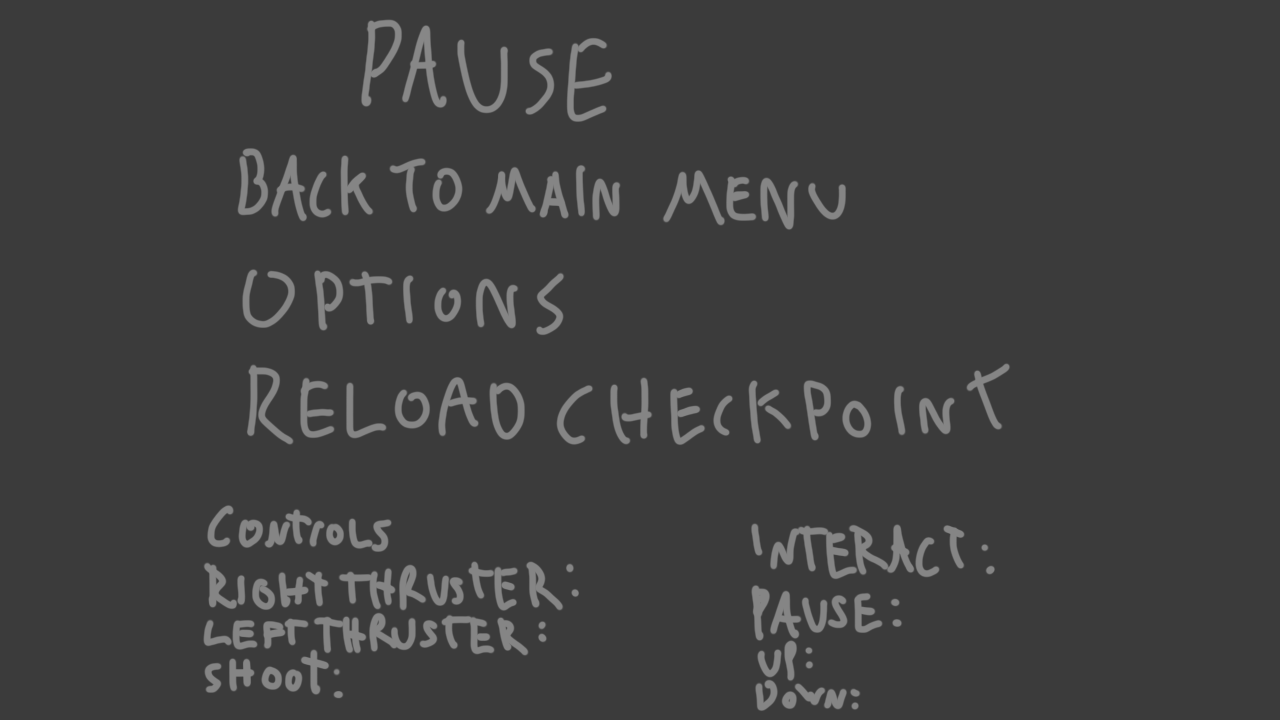 PAUSE
BACK TO MAIN MENU
OPTIONS
RELOAD CHECKPOINT
CONTROLS
RIGHT THRUSTER:
LEFT THRUSTER:
SHOOT:
INTERACT:
PAUSE:
UP:
DOWN: